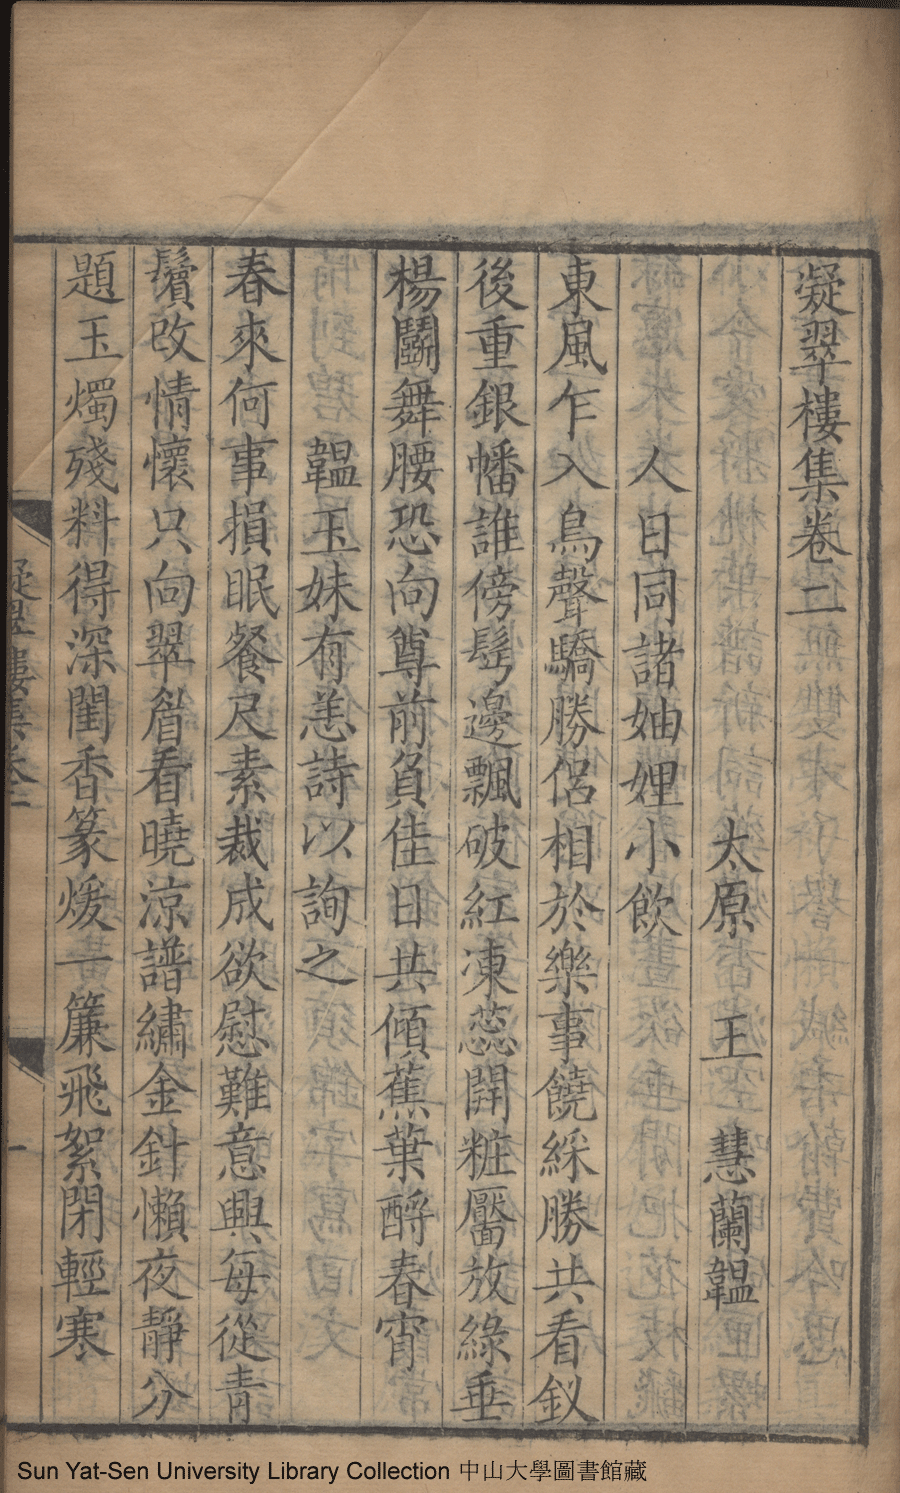 凝翠樓集卷二
太原　王　慧蘭韞
人日同諸妯娌小飲
東風乍入鳥聲驕勝侶相於樂事饒綵勝共看釵
後重銀幡誰傍髩邊飄破紅凍蕊開粧靨放綠垂
楊鬬舞腰恐向尊前負佳日共傾蕉葉酹春宵
韞玉妹有恙詩以詢之
春來何事損眠餐尺素裁成欲慰難意興每從青
鬢改情懷只向翠眉看曉涼譜繡金針懶夜靜分
題玉燭殘料得深閨香篆煖一簾飛絮閉輕寒
凝翠樓集卷二
一
Sun Yat-Sen University Library Collection 中山大學圖書館藏